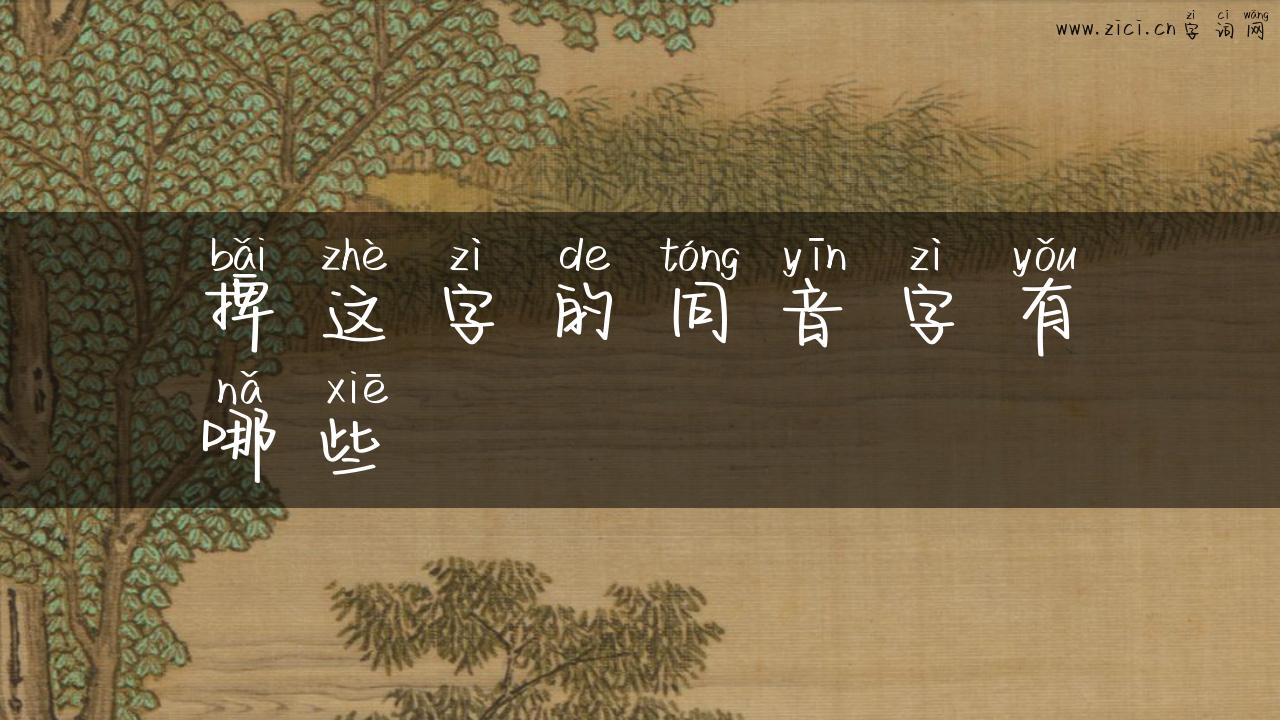 zì cí wǎng
www.zici.cn字词网
bǎi zhè zì de tóng yīn zì yǒu
捭这字的同音字有
nǎ xiē
哪些